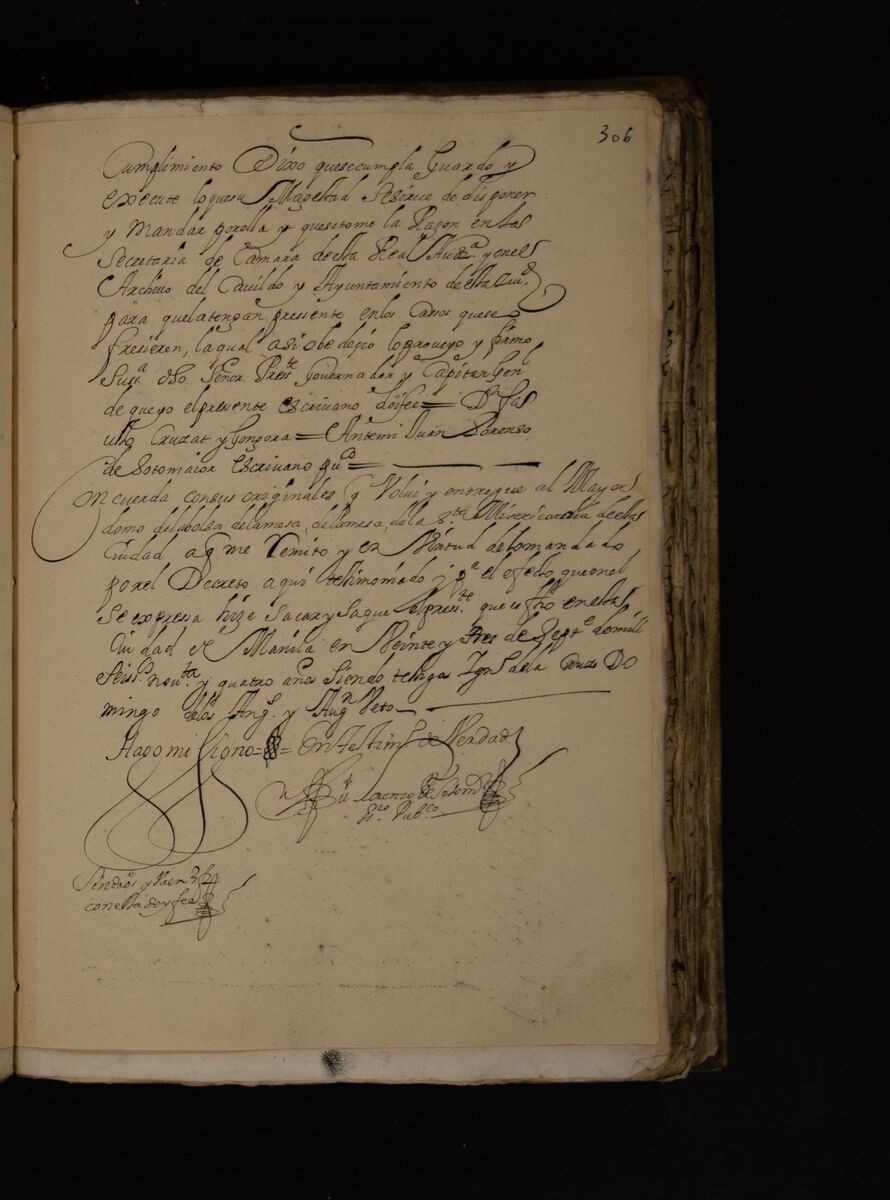 306
Cumplimiento Dixo quese cumpla Guarde y
execute loquesu Magestad sesirve de disponer
y mandar porella y quesetome la Razon en las
Secretaria de Camara desta Real Auda. y enel
Archivo del Cavildo y Ayuntamiento de esta Ciud.
para quela tengan pressente enlos Casos quese o
fresieren, laqual asi obedeçio lo proveyo y firmo
Susa. dho Señor Preste Governador y Capitan Genl
de que yo el presente escrivano doi fee = Dn. fas
ulto Cruzat y Gongora = Antemi Juan Lorenso
de Sotomaior escrivano puco =
Concuerda con sus originales q Volvi y entregue al Mayor
domo delabolsa delamesa, delamesa, dela Sta. Misericordia de esta
Ciudad aq me remito y en Virtud delo mandado
por el Decreto aqui testimoniado y pa. el efecto que en el
se expressa hize sacar y saque el presste. que es fho en esta
Ciudad de Manila en Veinte y tres de Septe. de mill
Seiss.os nouta. y quatro años siendo testigos Igno dela Cruz Do
mingo delos Angs. y Augn Veto
Hago mi signo = = En Testimo de Verdad
Lorenzo de Sotomor
Sno. Pubco
Sin dros y Va en 3 fs
con esta doy fee